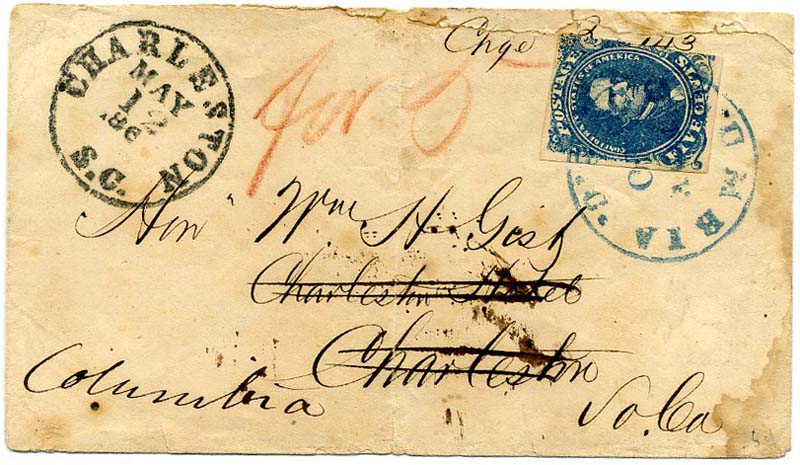 Chge 2 143
CHARLESTON
S.C.
MAY
12
186
for 5
POSTAGE
CONFEDERATE STATES OF AMERICA
FIVE CENTS
UMBIA
Hon Wm H Gist
Charleston Hotel
Charleston
Columbia So. Ca